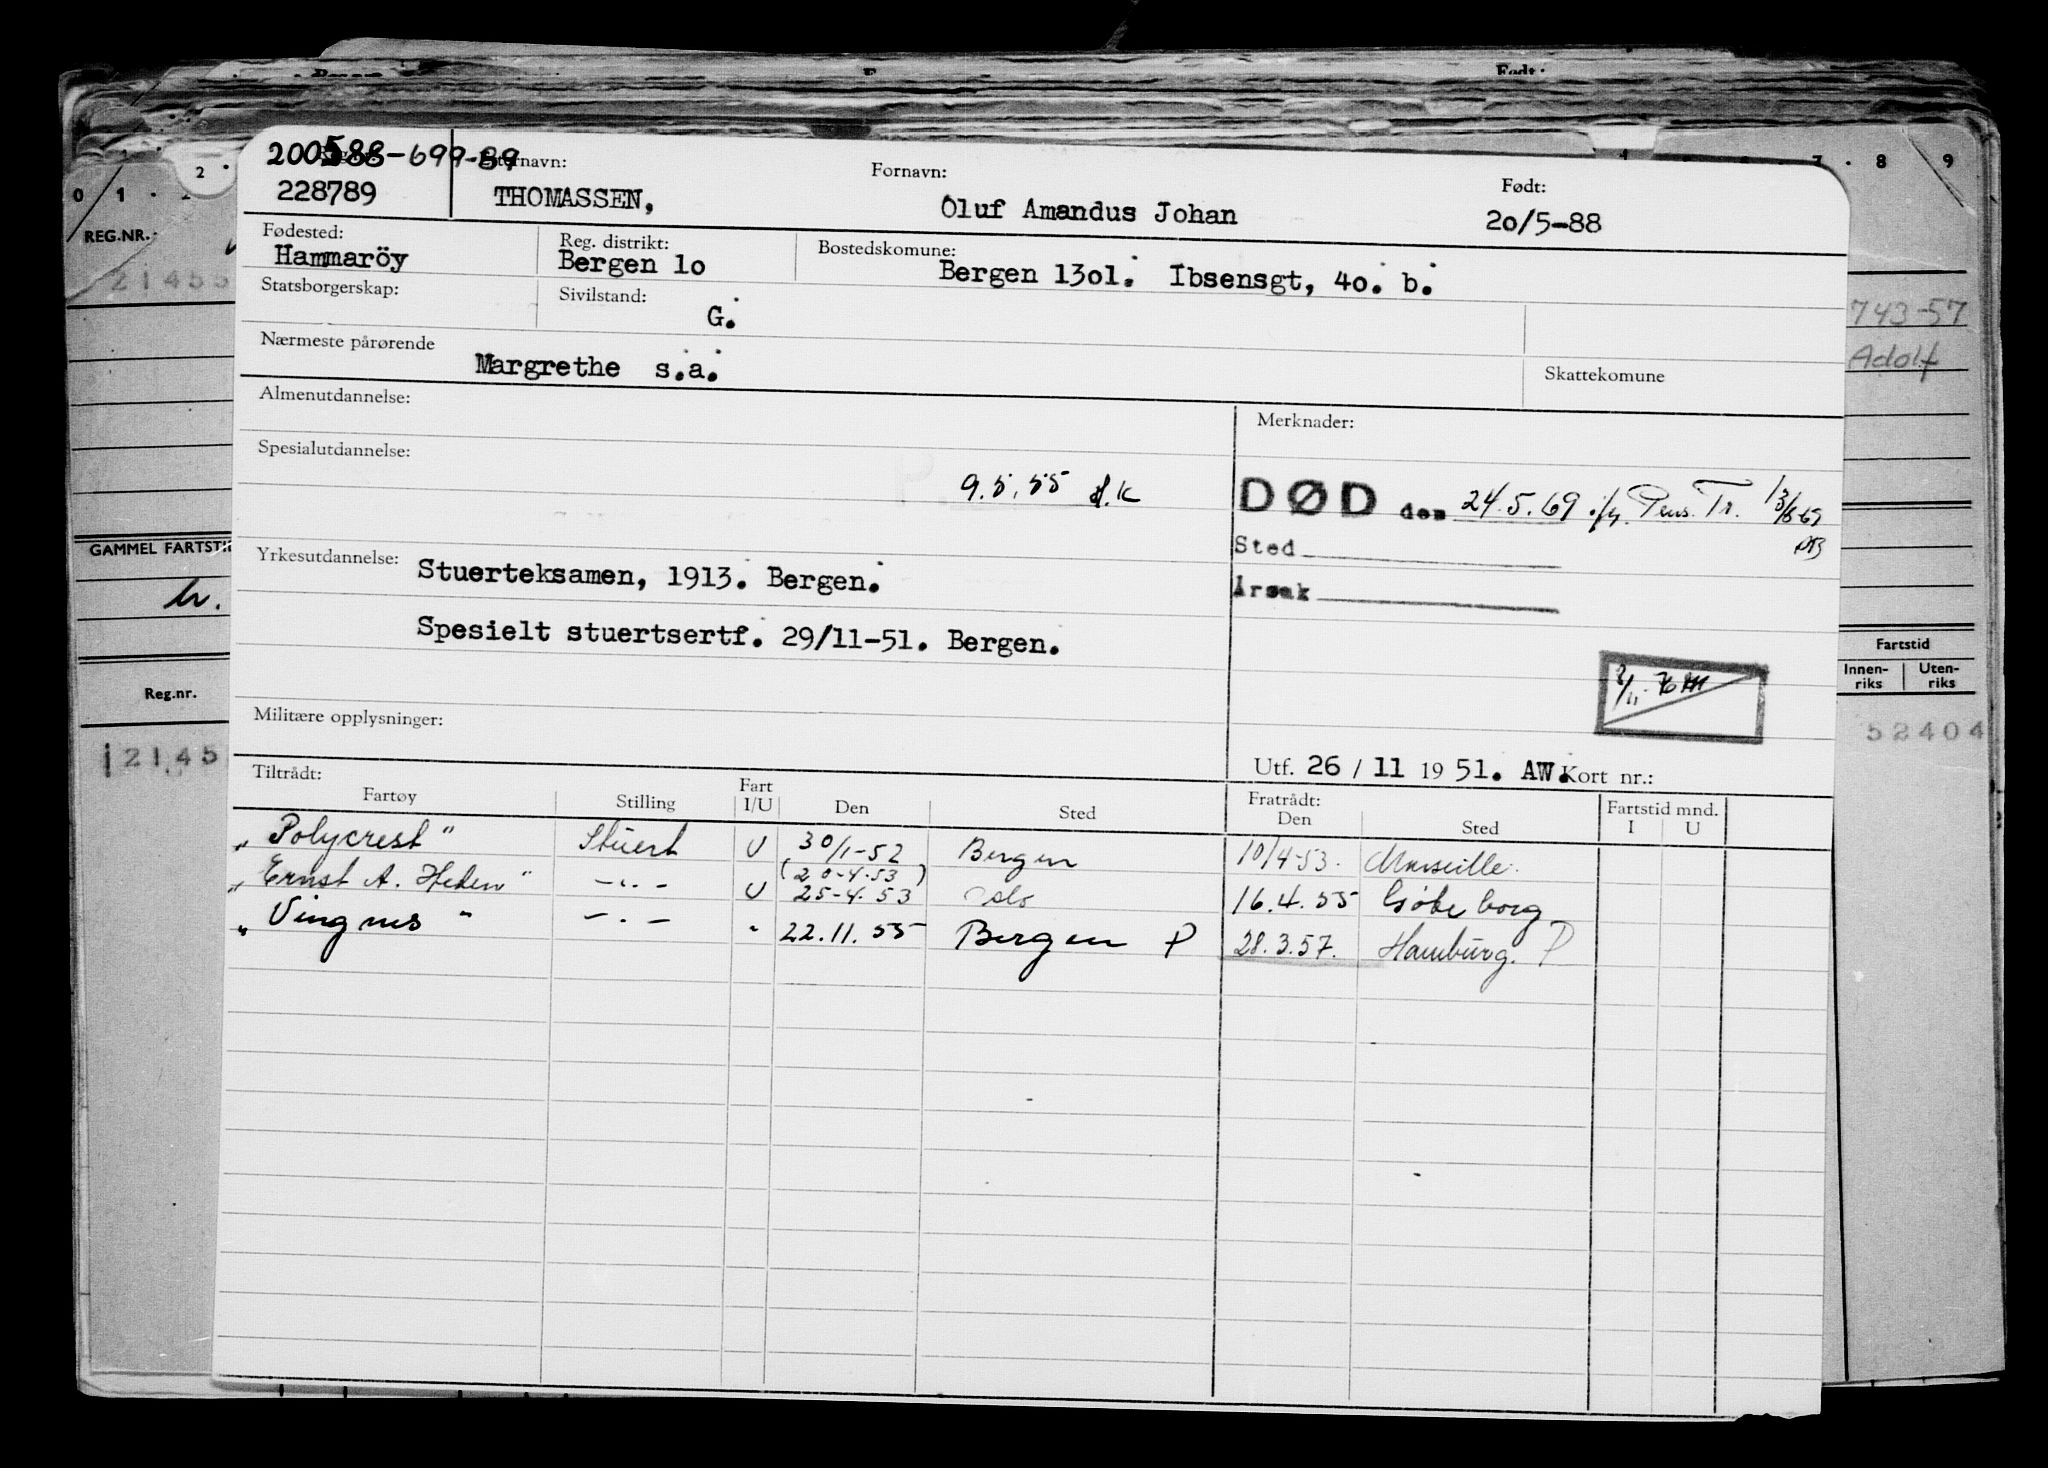 Født:
0 1 · 2 · 7 · 8 9
REG.NR.
21455
GAMMEL FARTSTID
Reg.nr.
12145
200588-699-89 Etternavn: Fornavn: Født:
228789 THOMASSEN, Oluf Amandus Johan 20/5-88
Fødested: Reg. distrikt: Bostedskomune:
Hammaröy Bergen 1o Bergen 13o1. Ibsensgt, 4o. b.
Statsborgerskap: Sivilstand:
G.
Nærmeste pårørende
Margrethe s.a. Skattekomune
Almenutdannelse: Merknader:
Spesialutdannelse:
9.5.55 DØD den 24.5.69 i/g. Pens. Tr. 13/6 69
Sted
Yrkesutdannelse: Stuerteksamen, 1913. Bergen.
Årsak
Spesielt stuertsertf. 29/11-51. Bergen.
Militære opplysninger:
Utf. 26 / 11 19 51. AW. Kort nr.:
Tiltrådt: Fratrådt: Fartstid mnd.
Fartøy Stilling Fart I/U Den Sted Den Sted I U
"Polycrest" Stuert U 30/1-52 Bergen 10/4-53. Marseille.
(20-4-53)
"Ernst A. Heden" -"- U 25-4-53 Oslo 16.4.55 Göteborg
"Vingnes" -"- " 22.11.55 Bergen P 28.3.57. Hamburg. P
743-57
Adolf
Fartstid
Innen-riks Uten-riks
52404